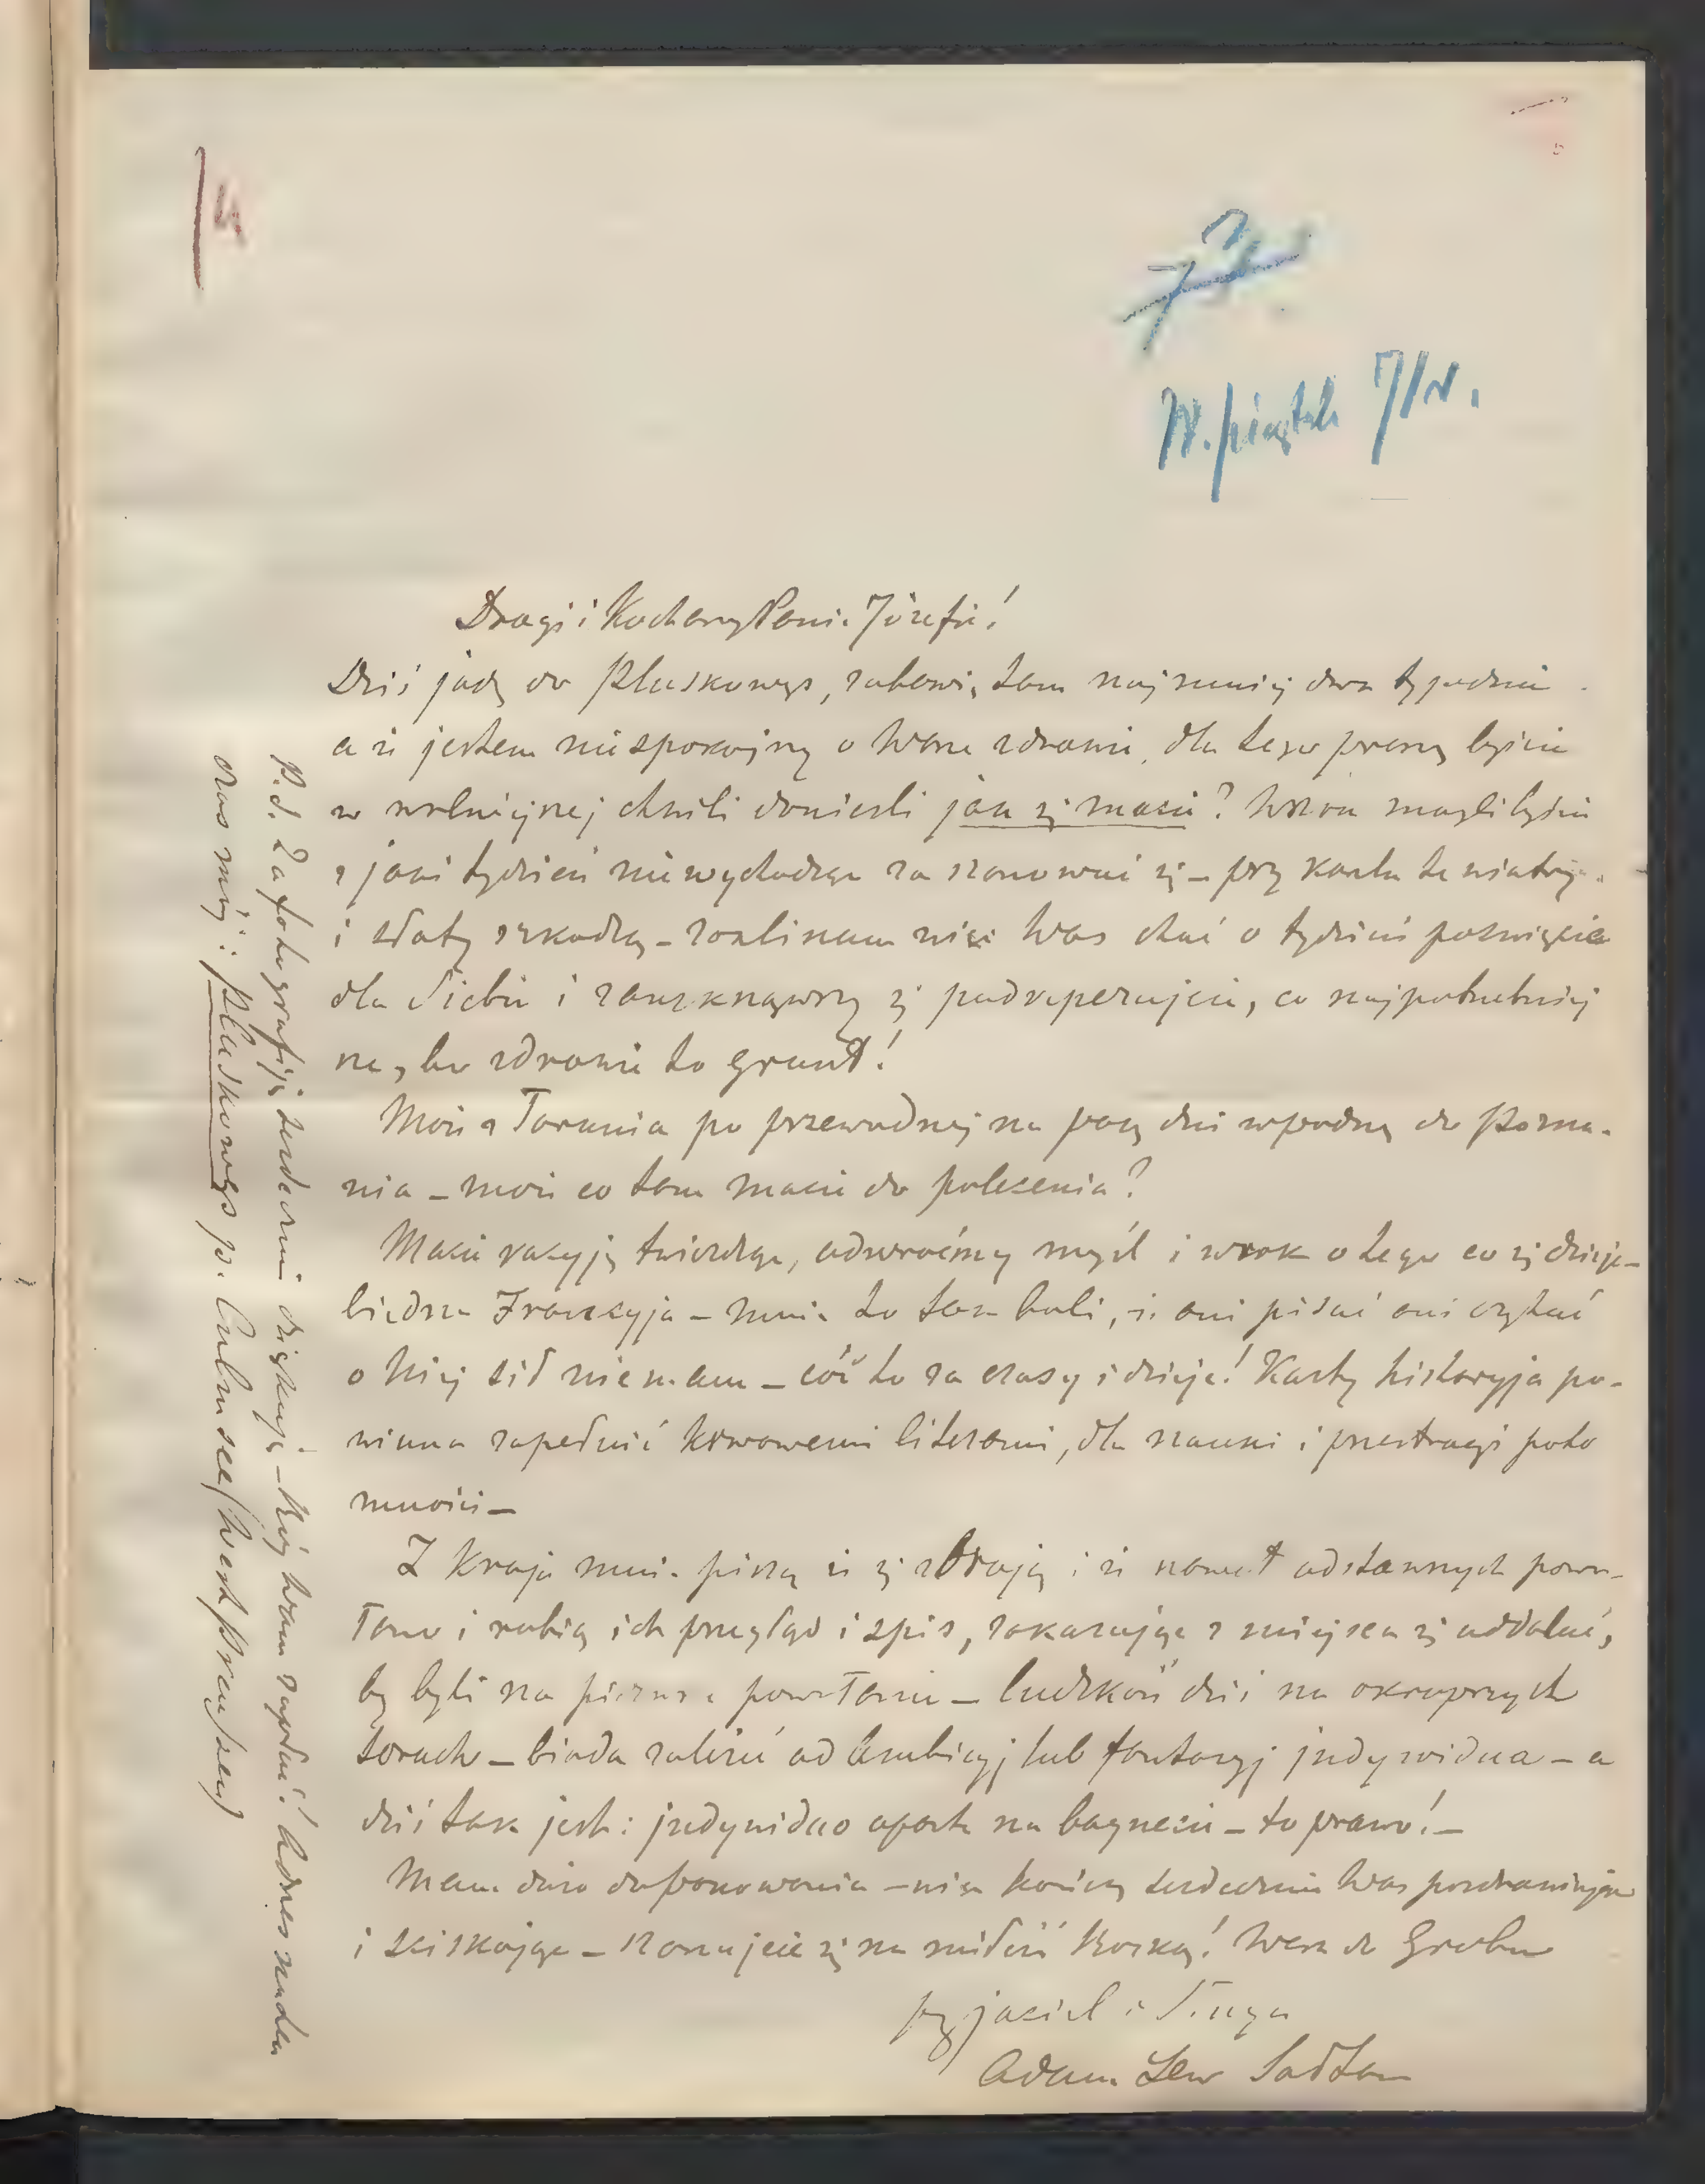 W. piątek 7/IV.
Drogi i Kochany Panie Józefie!
Dziś jadę do Pluskowęs, zabawię tam najmniej dwa tygodnie
a iż jestem niespokojny o Wasze zdrowie, dla tego proszę byście
w wolniejszej chwili donieśli jak się macie? Wszak moglibyście
z jaki tydzień niewychodząc za szanować się – przy kaszlu te wiatry
i słoty szkodzą – zaklinam więc Was choć o tydzień poświęcie
dla Siebie i zamknąwszy się podreperujcie, co najpotrzebniej
sze, bo zdrowie to grunt!
Może z Torunia po przewodniej na parę dni wpadnę do Pozna-
nia – może co tam macie do polecenia?
Macie racyję twierdząc, odwróćmy myśl i wzrok o tego co się dzieje –
biedna Francyja – mnie to tak boli, iż ani pisać ani czytać
o Niej sił nie mam – cóż to za czasy i dzieje! Karty historyja po-
winna zapełnić krwawemi literami, dla nauki i przestrogi poto
mności –
Z Kraju mnie piszą iż się zbroją i iż nawet odstawnych powo-
łano i robią ich przegląd i spis, zakazując z miejsca się oddalać,
by byli na pierwsze powołanie – ludzkość dziś na okropnych
torach – biada zależeć od ambicyj lub fantazyj indywidua – a
dziś tak jest: indywiduo oparte na bagnecie – to prawo! –
Mam dużo do pakowania – więc kończę serdecznie Was pozdrawiając
i ściskając – szanujcie się na miłość Boską! Wasz do Grobu
przyjaciel i Sługa
Adam Lew Sołtan
P.S. Za fotografiję serdecznie dziękuję – Bóg Wam zapłać! Adres na ten
czas mój: Pluskowęs p. Culmsee (West Preussen)